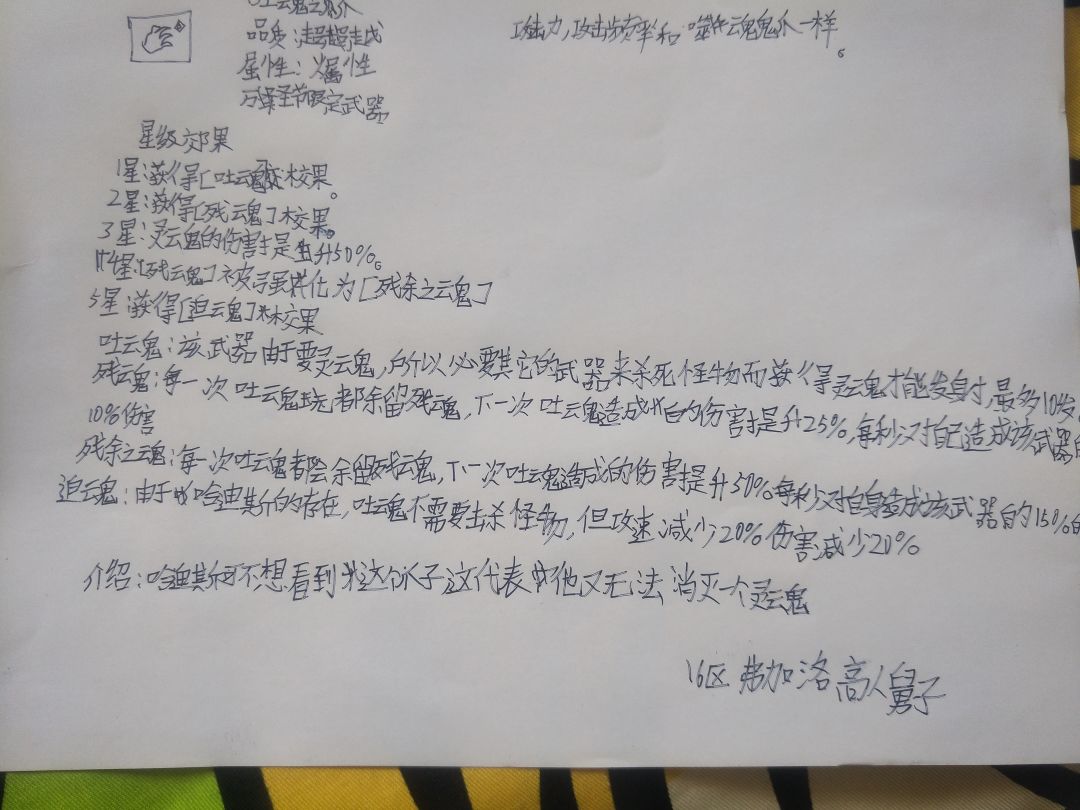 吐魂之鬼爪
品质:超越
属性:火属性
万圣节限定武器
攻击力,攻击频率和噬魂鬼爪一样。
星级效果
1星:获得[吐魂]效果。
2星:获得[残魂]效果。
3星:灵魂的伤害提升50%。
4星:[残魂]被强化为[残余之魂]
5星:获得[追魂]效果
吐魂:该武器由于要灵魂,所以必要其它的武器来杀死怪物而获得灵魂才能发射,最多10发
残魂:每一次吐魂都余留残魂,下一次吐魂造成的伤害提升25%,每秒对自己造成该武器的
10%伤害
残余之魂:每一次吐魂都会余留残魂,下一次吐魂造成的伤害提升50%每秒对自身造成该武器的15%的
追魂:由于哈迪斯的存在,吐魂不需要击杀怪物,但攻速减少20%伤害减少20%
介绍:哈迪斯可不想看到这个爪子这代表他又无法消灭一个灵魂
16区 弗加洛高人舅子